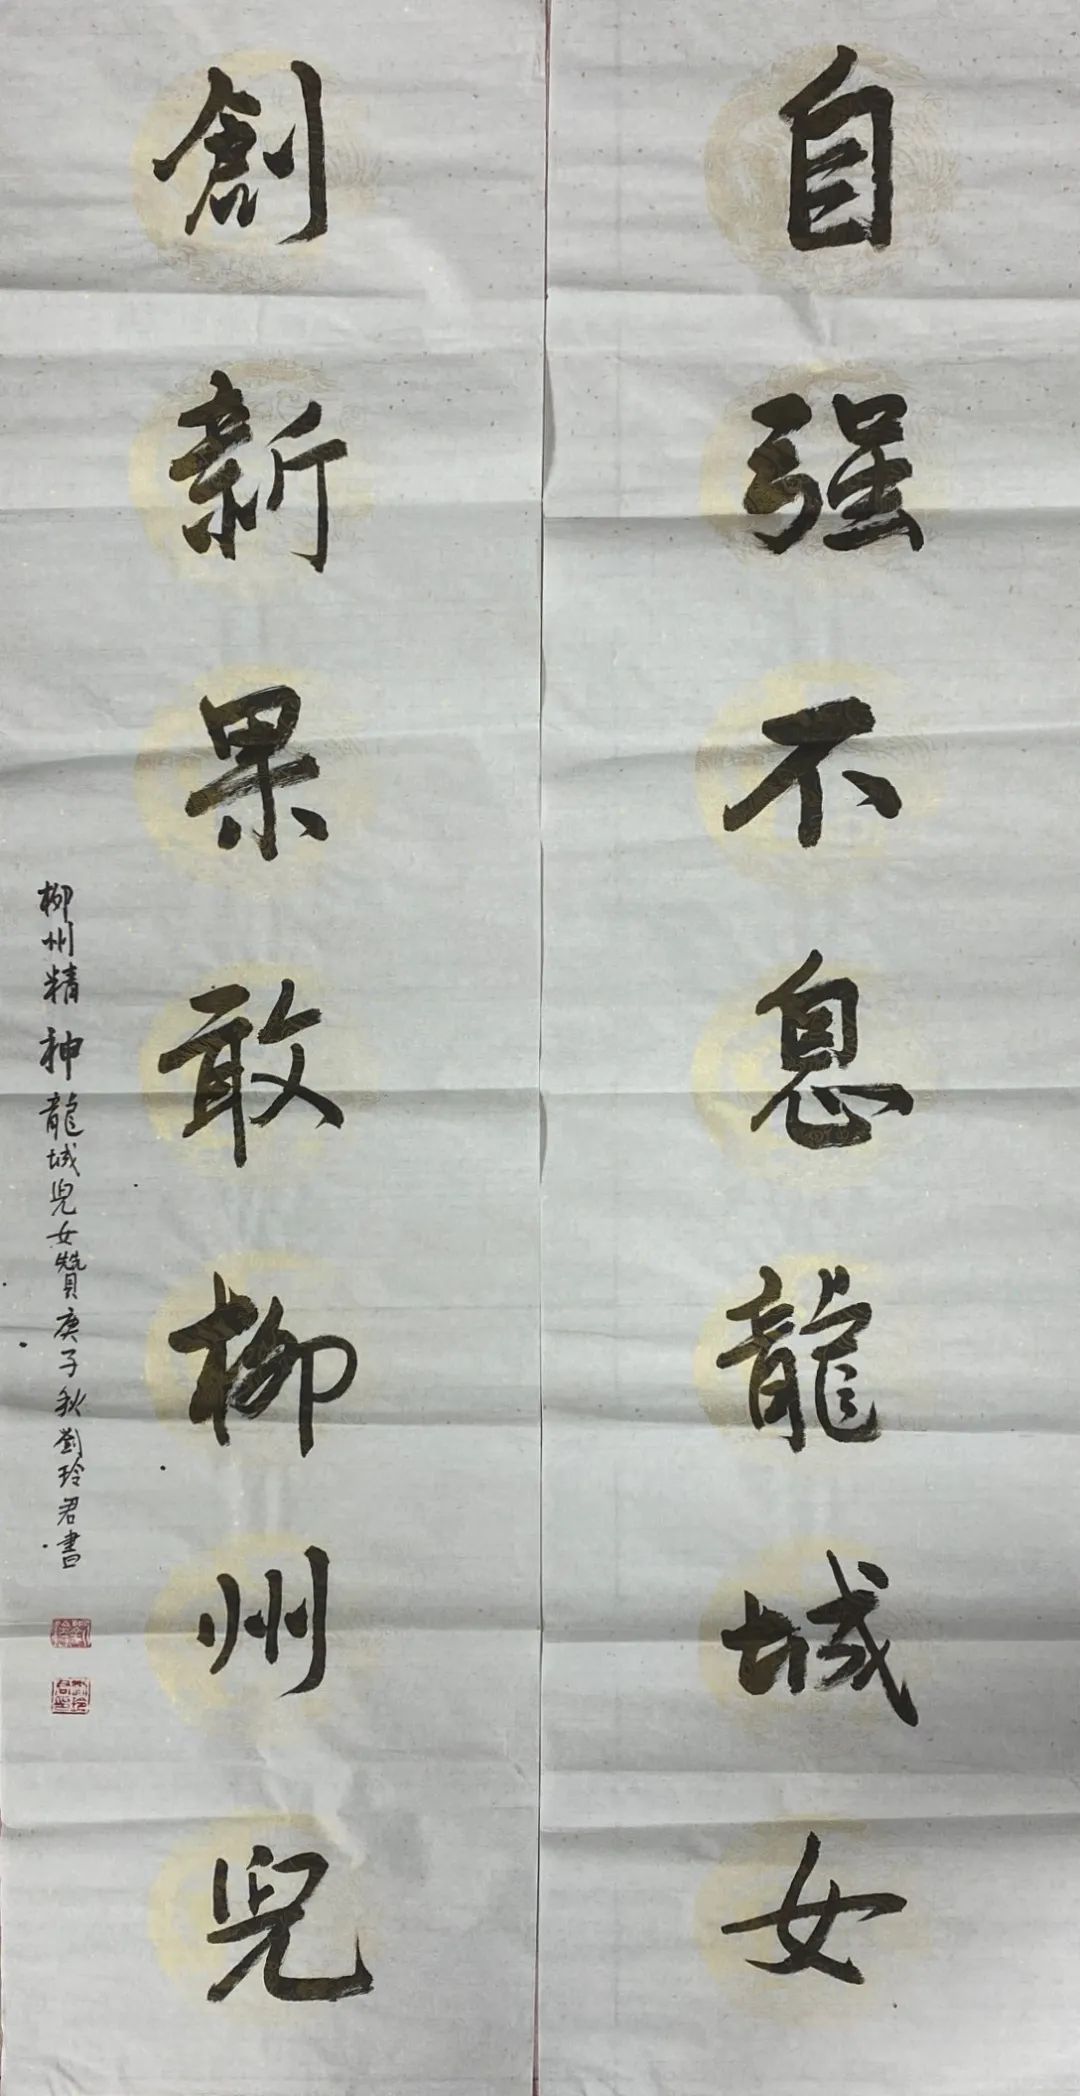 自强不息龍城女
創新果敢柳州兒
柳州精神龍城兒女贊庚子秋劉玲君書